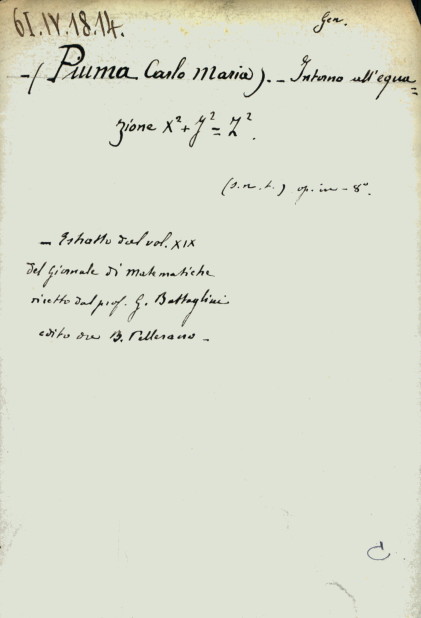 61.IV.18.14.
Gen.
-(Piuma Carlo Maria). - Intorno all'equa=
zione X²+Y²=Z².
(s.n.t.) op. in-8°.
- Estratto dal vol. XIX
del Giornale di Matematiche
diretto dal prof. G. Battaglini
edito da B. Pellerano -
C